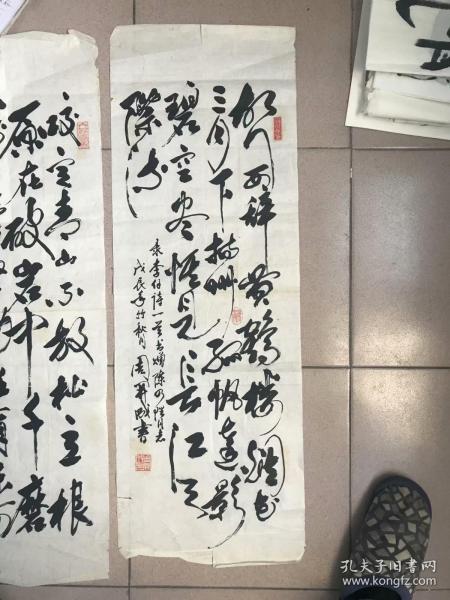 故人西辞黄鹤楼烟花
三月下扬州孤帆远影
碧空尽惟见长江天
际流
录李白诗一首书赠陈
戊辰年竹秋月 周
书
咬定青山不放松立根
原在破岩中千磨
孔夫子旧书网
www.kongfz.com